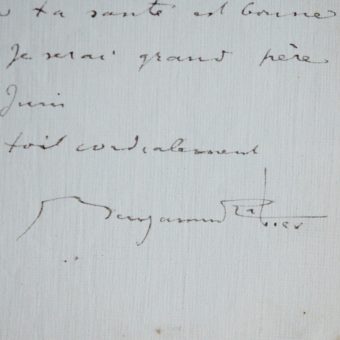 ta santé est bonne
Je serai grand père
Juin
toi cordialement
Benjamin Rabier